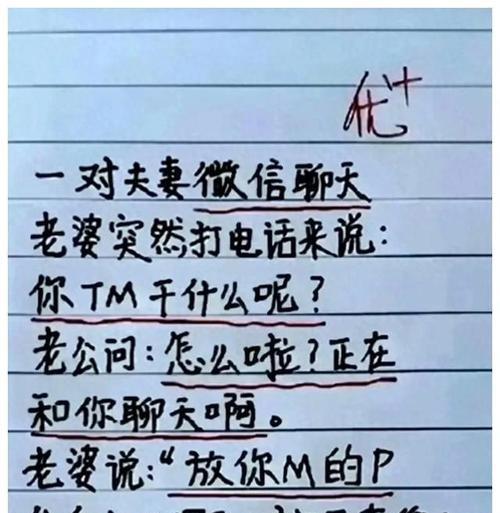 优+
一对夫妻微信聊天
老婆突然打电话来说:
你TM干什么呢?
老公问:怎么啦?正在
和你聊天啊。
老婆说:“放你M的P